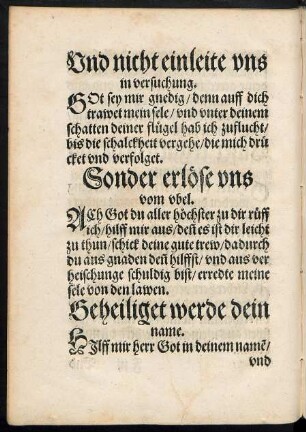 Vnd nicht einleite vns
in versuchung.
GOt sey mir gnedig/ denn auff dich
trawet mein sele/ vnd vnter deinem
schatten deiner flügel hab ich zuflucht/
bis die schalckheit vergehe/ die mich drü
cket vnd verfolget.
Sonder erlöse vns
vom vbel.
ACh Got du aller höchster zu dir rüff
ich/ hilff mir aus/ deñ es ist dir leicht
zu thun/ schick deine gute trew/ dadurch
du aus gnaden deñ hilffst/ vnd aus ver
heischunge schuldig bist/ erredte meine
sele von den lawen.
Geheiliget werde dein
name.
HIlff mir herr Got in deinem namẽ/
vnd